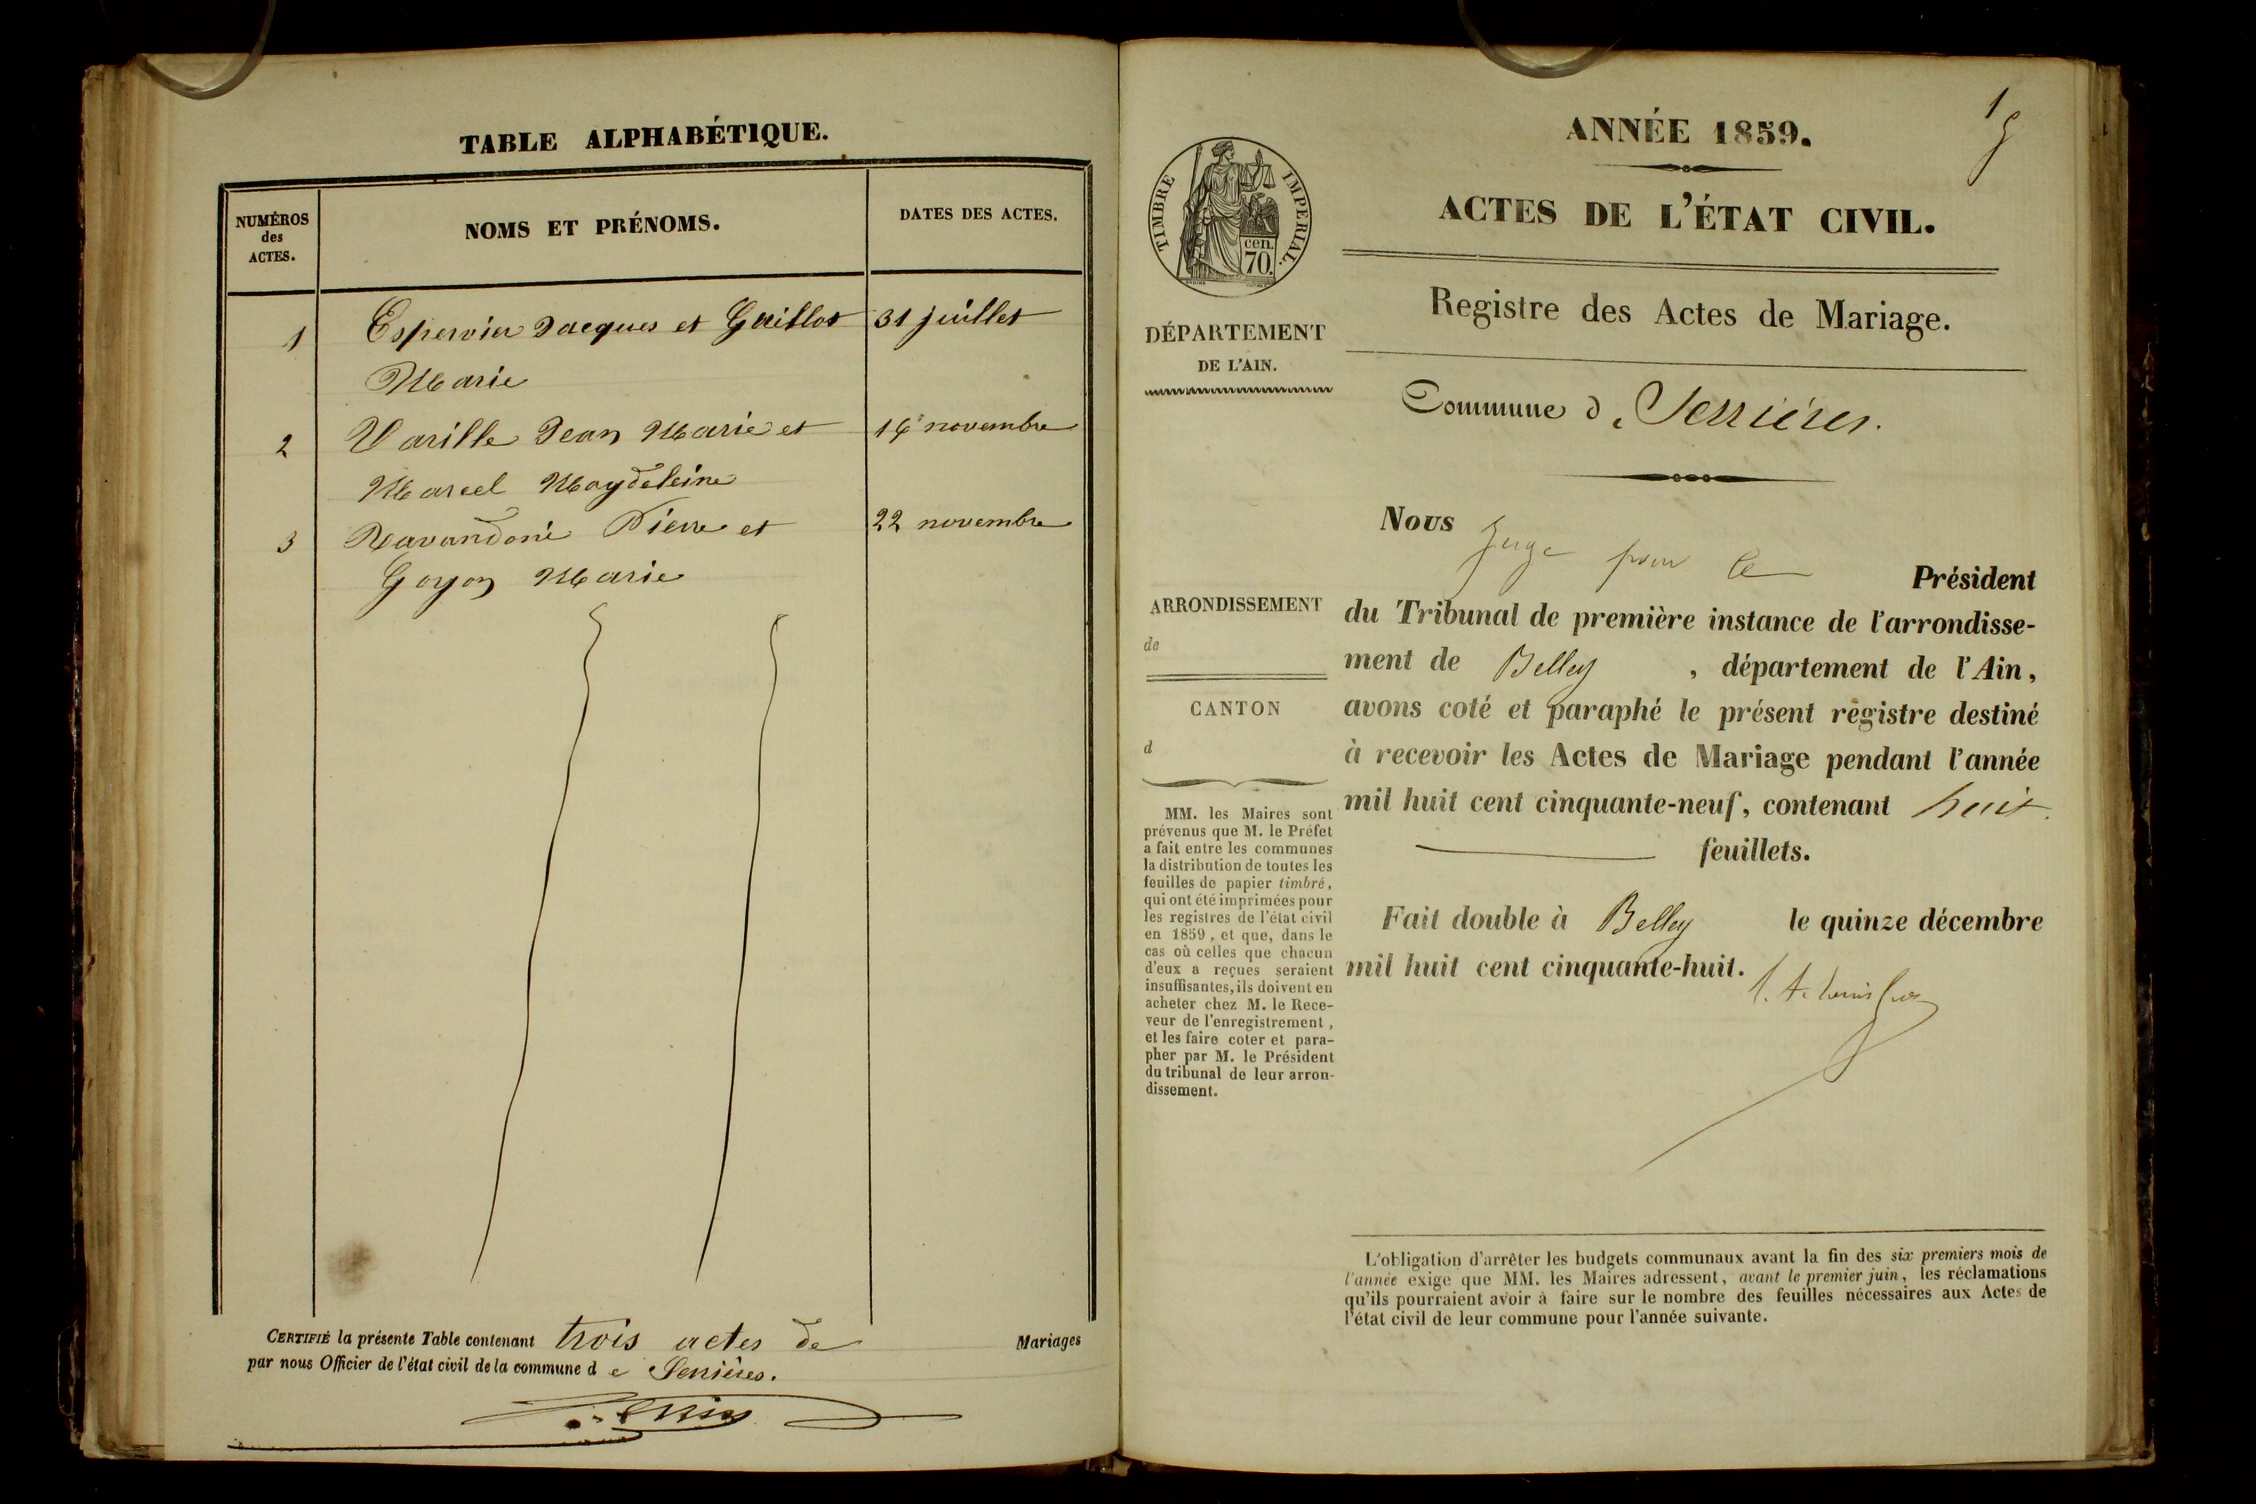 TABLE ALPHABÉTIQUE.
NUMÉROS
des
ACTES.
NOMS ET PRÉNOMS.
DATES DES ACTES.
1 Espervier Jacques et Guillot 31 juillet
Marie
2 Varille Jean Marie et 14 novembre
Marcel Magdeleine
3 Pierre et 22 novembre
Goyon Marie
CERTIFIÉ la présente Table contenant trois actes de Mariages
par nous Officier de l'état civil de la commune d e Serrières.
1
ANNÉE 1859.
ACTES DE L'ÉTAT CIVIL.
TIMBRE IMPERIAL.
cen.
70.
DÉPARTEMENT
DE L'AIN.
Registre des Actes de Mariage.
Commune de Serrières.
ARRONDISSEMENT
de
CANTON
d
MM. les Maires sont
prévenus que M. le Préfet
a fait entre les communes
la distribution de toutes les
feuilles de papier timbré,
qui ont été imprimées pour
les registres de l'état civil
en 1859, et que, dans le
cas où celles que chacun
d'eux a reçues seraient
insuffisantes, ils doivent en
acheter chez M. le Rece-
veur de l'enregistrement,
et les faire coter et para-
pher par M. le Président
du tribunal de leur arron-
dissement.
Nous Juge pour le Président
du Tribunal de première instance de l'arrondisse-
ment de Belley, département de l'Ain,
avons coté et paraphé le présent régistre destiné
à recevoir les Actes de Mariage pendant l'année
mil huit cent cinquante-neuf, contenant huit
feuillets.
Fait double à Belley le quinze décembre
mil huit cent cinquante-huit.
L'obligation d'arrêter les budgets communaux avant la fin des six premiers mois de
l'année exige que MM. les Maires adressent, avant le premier juin, les réclamations
qu'ils pourraient avoir à faire sur le nombre des feuilles nécessaires aux Actes de
l'état civil de leur commune pour l'année suivante.